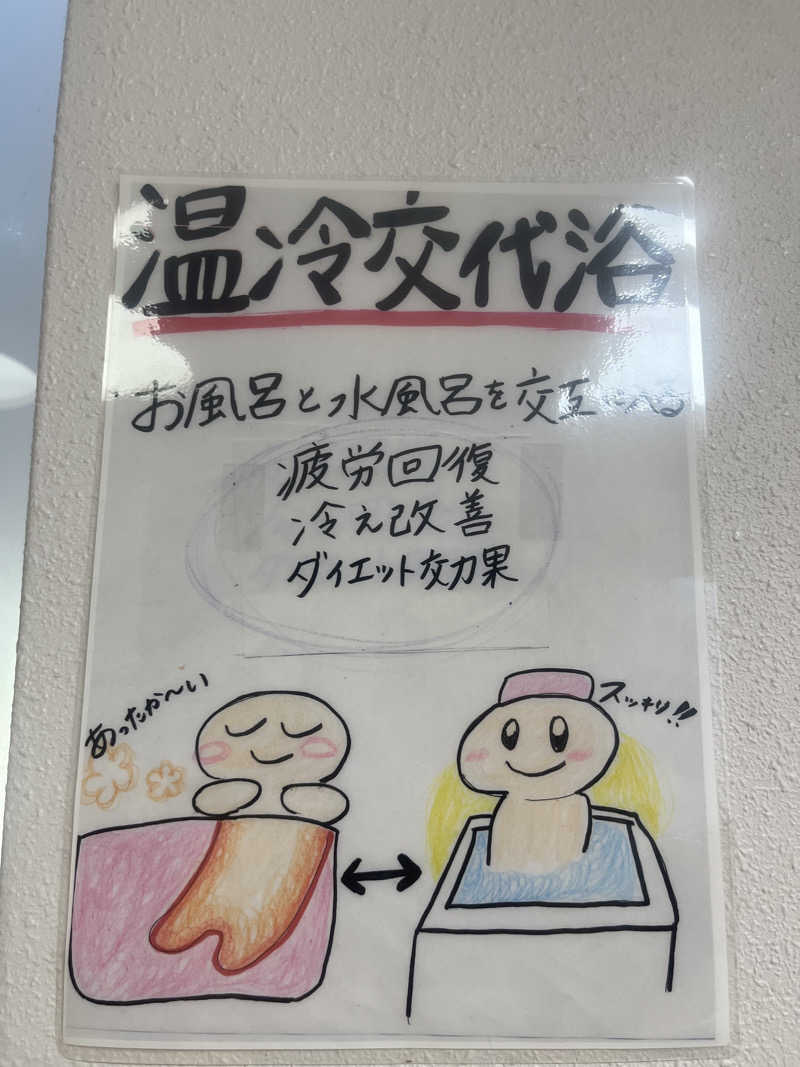 温冷交代浴
お風呂と水風呂を交互に入る
疲労回復
冷え改善
ダイエット効果
あったか〜い
スッキリ!!